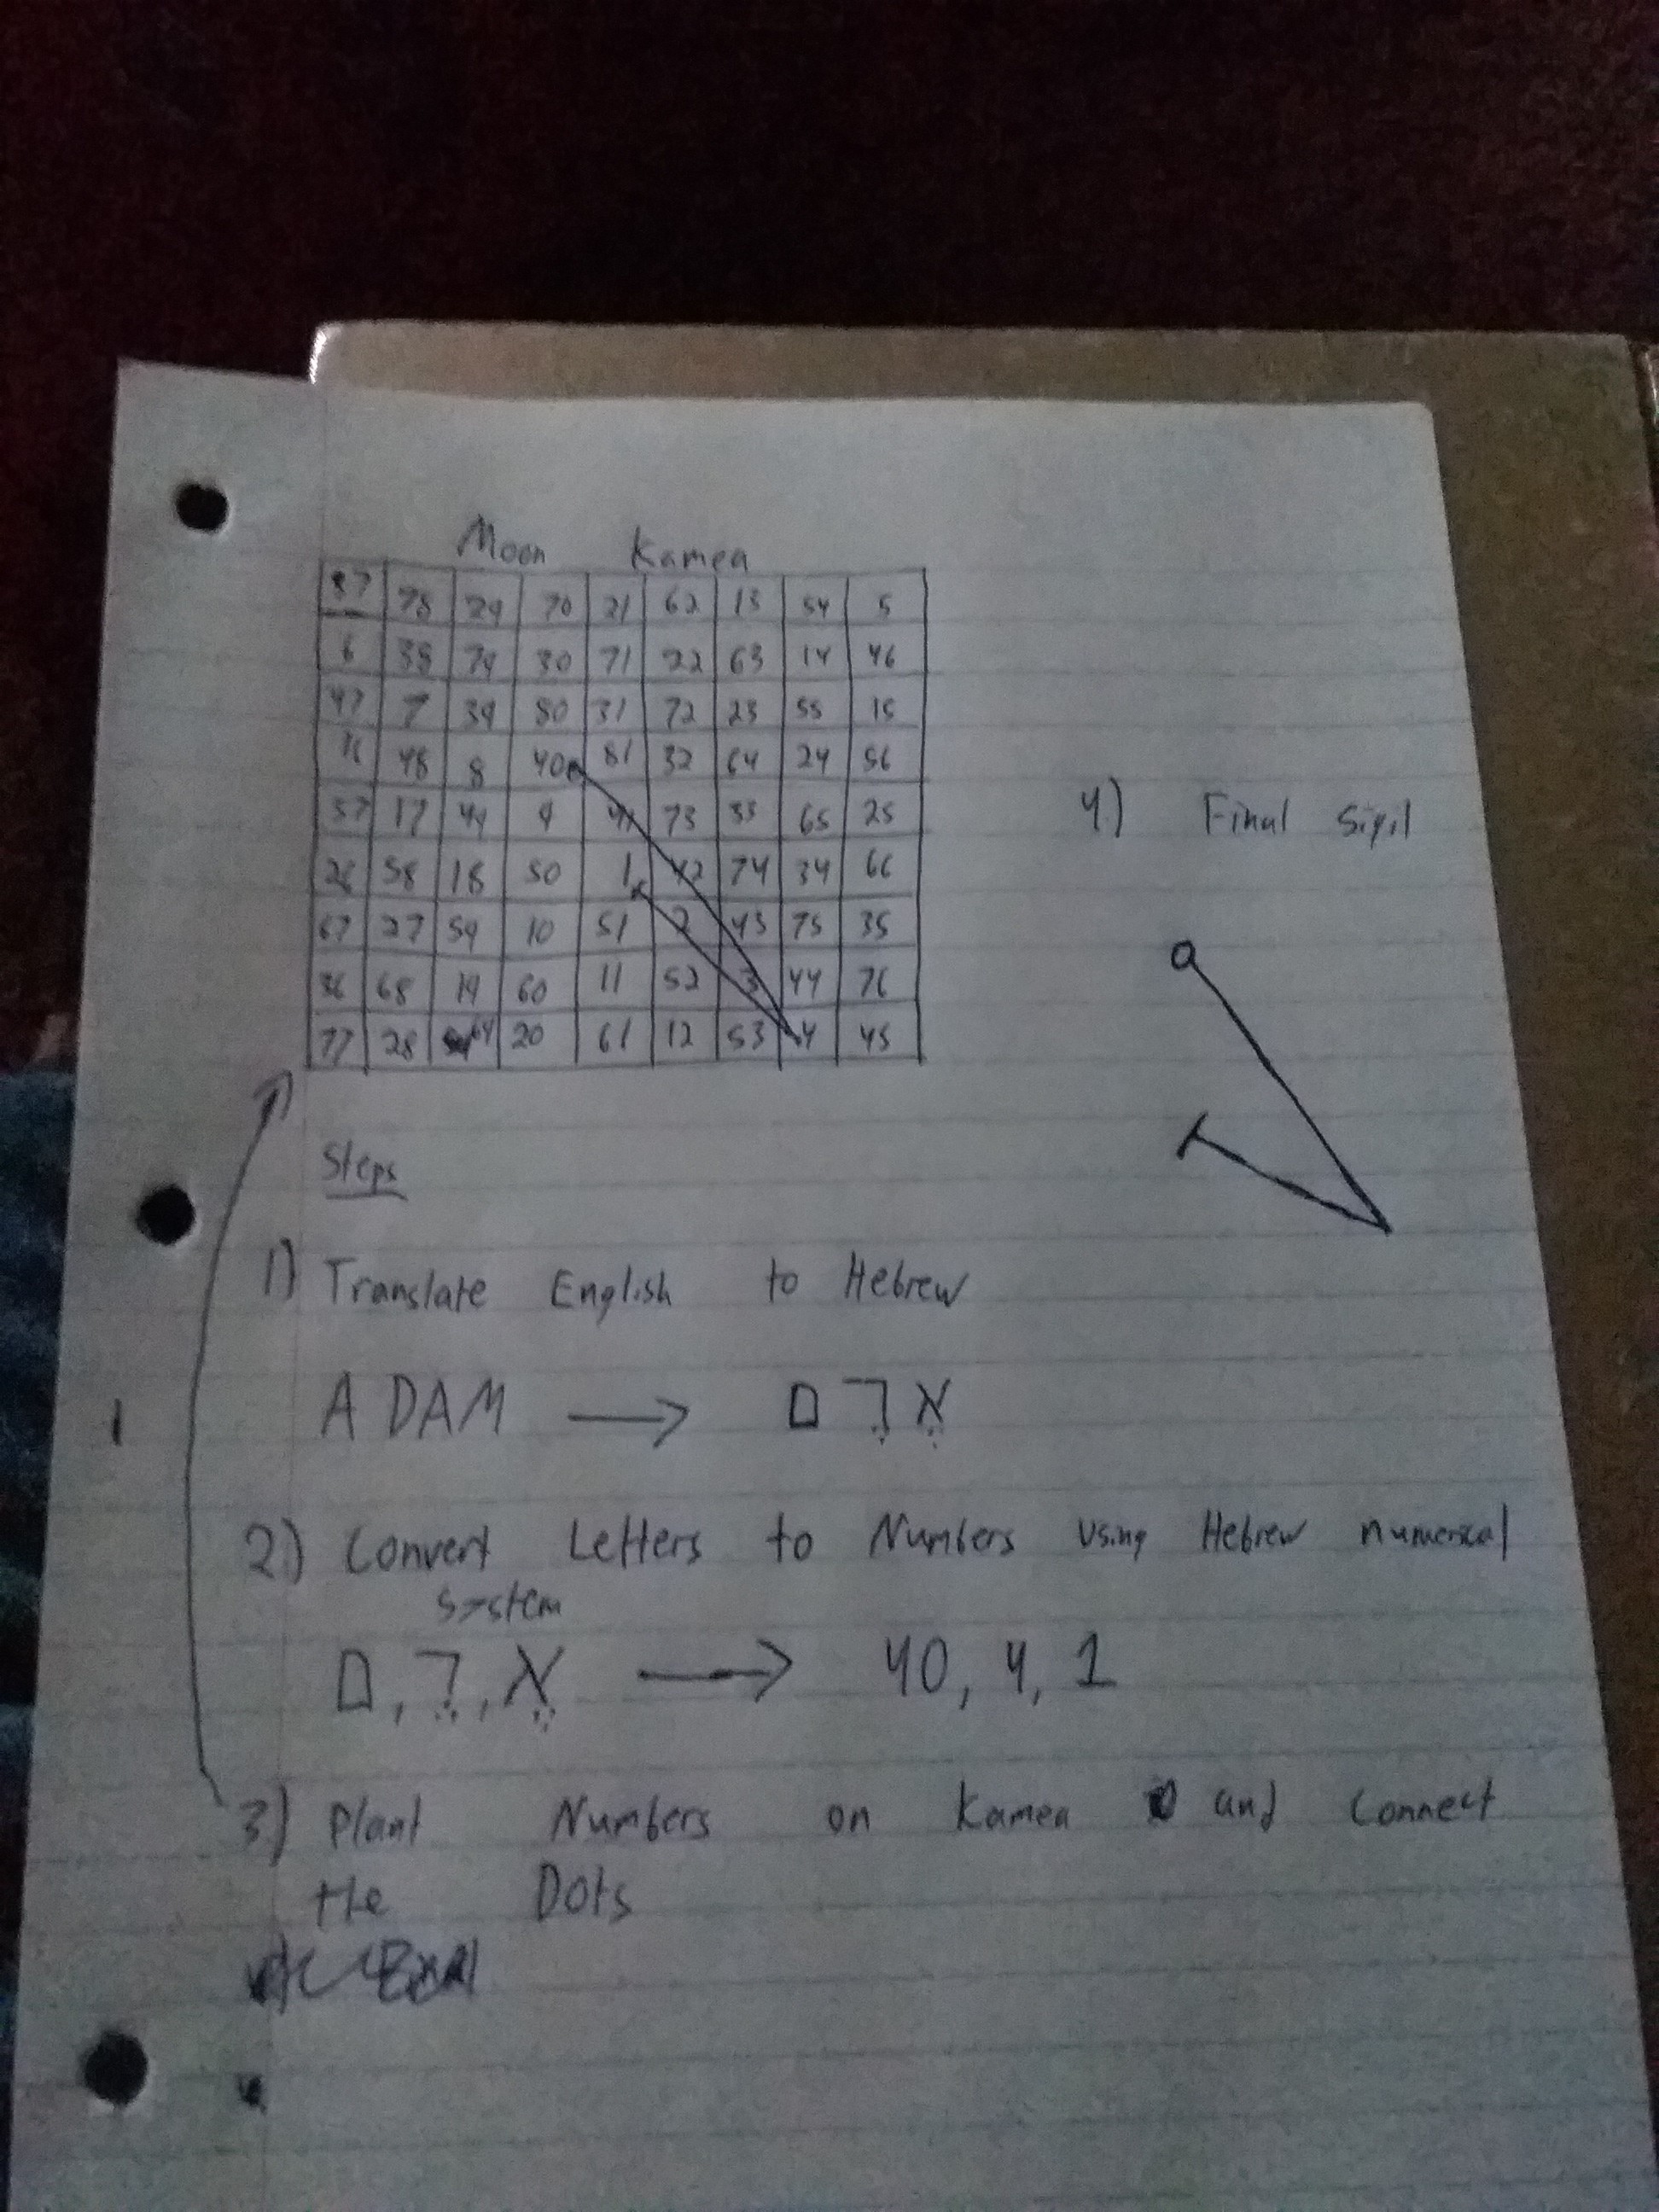 Moon Kamea
37 78 29 70 21 62 13 54 5
6 38 79 30 71 22 63 14 46
47 7 39 80 31 72 23 55 15
16 48 8 40 81 32 64 24 56
57 17 49 9 41 73 33 65 25
26 58 18 50 1 42 74 34 66
67 27 59 10 51 2 43 75 35
36 68 19 60 11 52 3 44 76
77 28 69 20 61 12 53 4 45
4) Final Sigil
Steps
1) Translate English to Hebrew
ADAM → אֶדֶם
2) Convert Letters to Numbers using Hebrew numerical
system
ם, דֶ, אֶ → 40, 4, 1
3) Plant Numbers on Kamea and Connect
the Dots